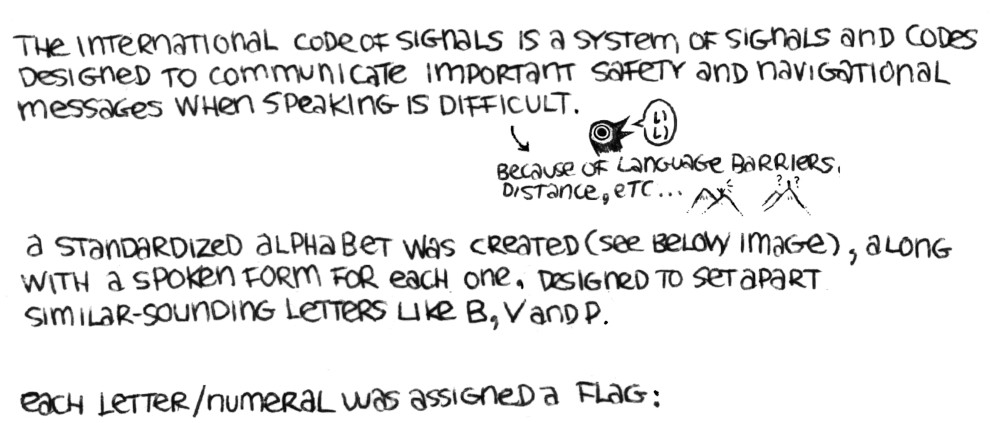 THE INTERNATIONAL CODE OF SIGNALS IS A SYSTEM OF SIGNALS AND CODES
DESIGNED TO COMMUNICATE IMPORTANT SAFETY AND NAVIGATIONAL
MESSAGES WHEN SPEAKING IS DIFFICULT.
いい
BECAUSE OF LANGUAGE BARRIERS,
DISTANCE, ETC...
? ?
A STANDARDIZED ALPHABET WAS CREATED (SEE BELOW IMAGE), ALONG
WITH A SPOKEN FORM FOR EACH ONE, DESIGNED TO SET APART
SIMILAR-SOUNDING LETTERS LIKE B, V AND P.
EACH LETTER/NUMERAL WAS ASSIGNED A FLAG: